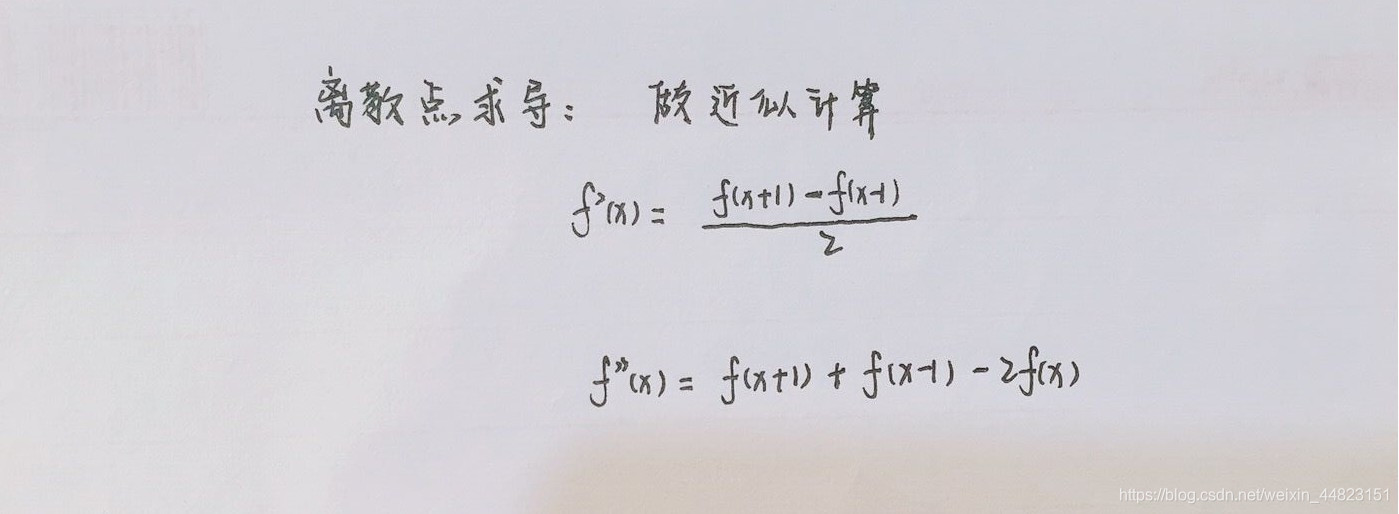 离散点求导： 做近似计算
f'(x) = \frac{f(x+1) - f(x-1)}{2}
f''(x) = f(x+1) + f(x-1) - 2f(x)
https://blog.csdn.net/weixin_44823151